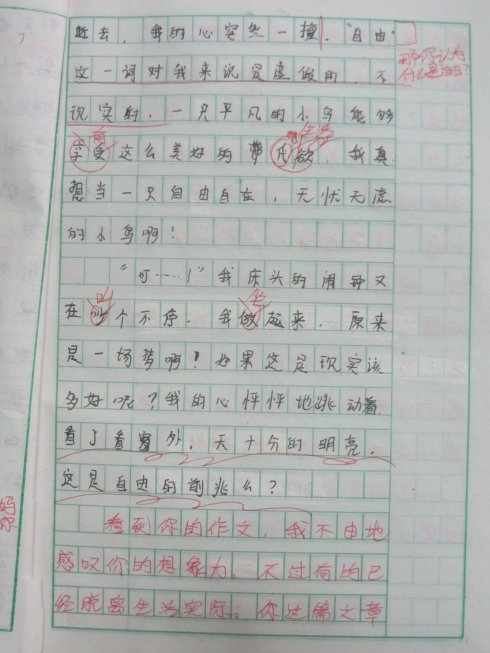 逝去，我的心突然一撞，“自由”
这一词对我来说是虚假的，不
现实的，一只平凡的小鸟能够
享受这么美好的
生活
，我真
想当一只自由自在，无忧无虑
的小鸟啊！
“叮……！”我床头的闹钟又
叫
在叫个不停，我做起来，原来
坐
是一场梦啊！如果这是现实该
多好呢？我的心怦怦地跳动着，
看了看窗外，天十分的明亮，
这是自由的前兆么？
看到你的作文，我不由地
感叹你的想象力。不过有的已
经脱离生活实际。你这篇文章
那你认为
什么是自由？
妈
你